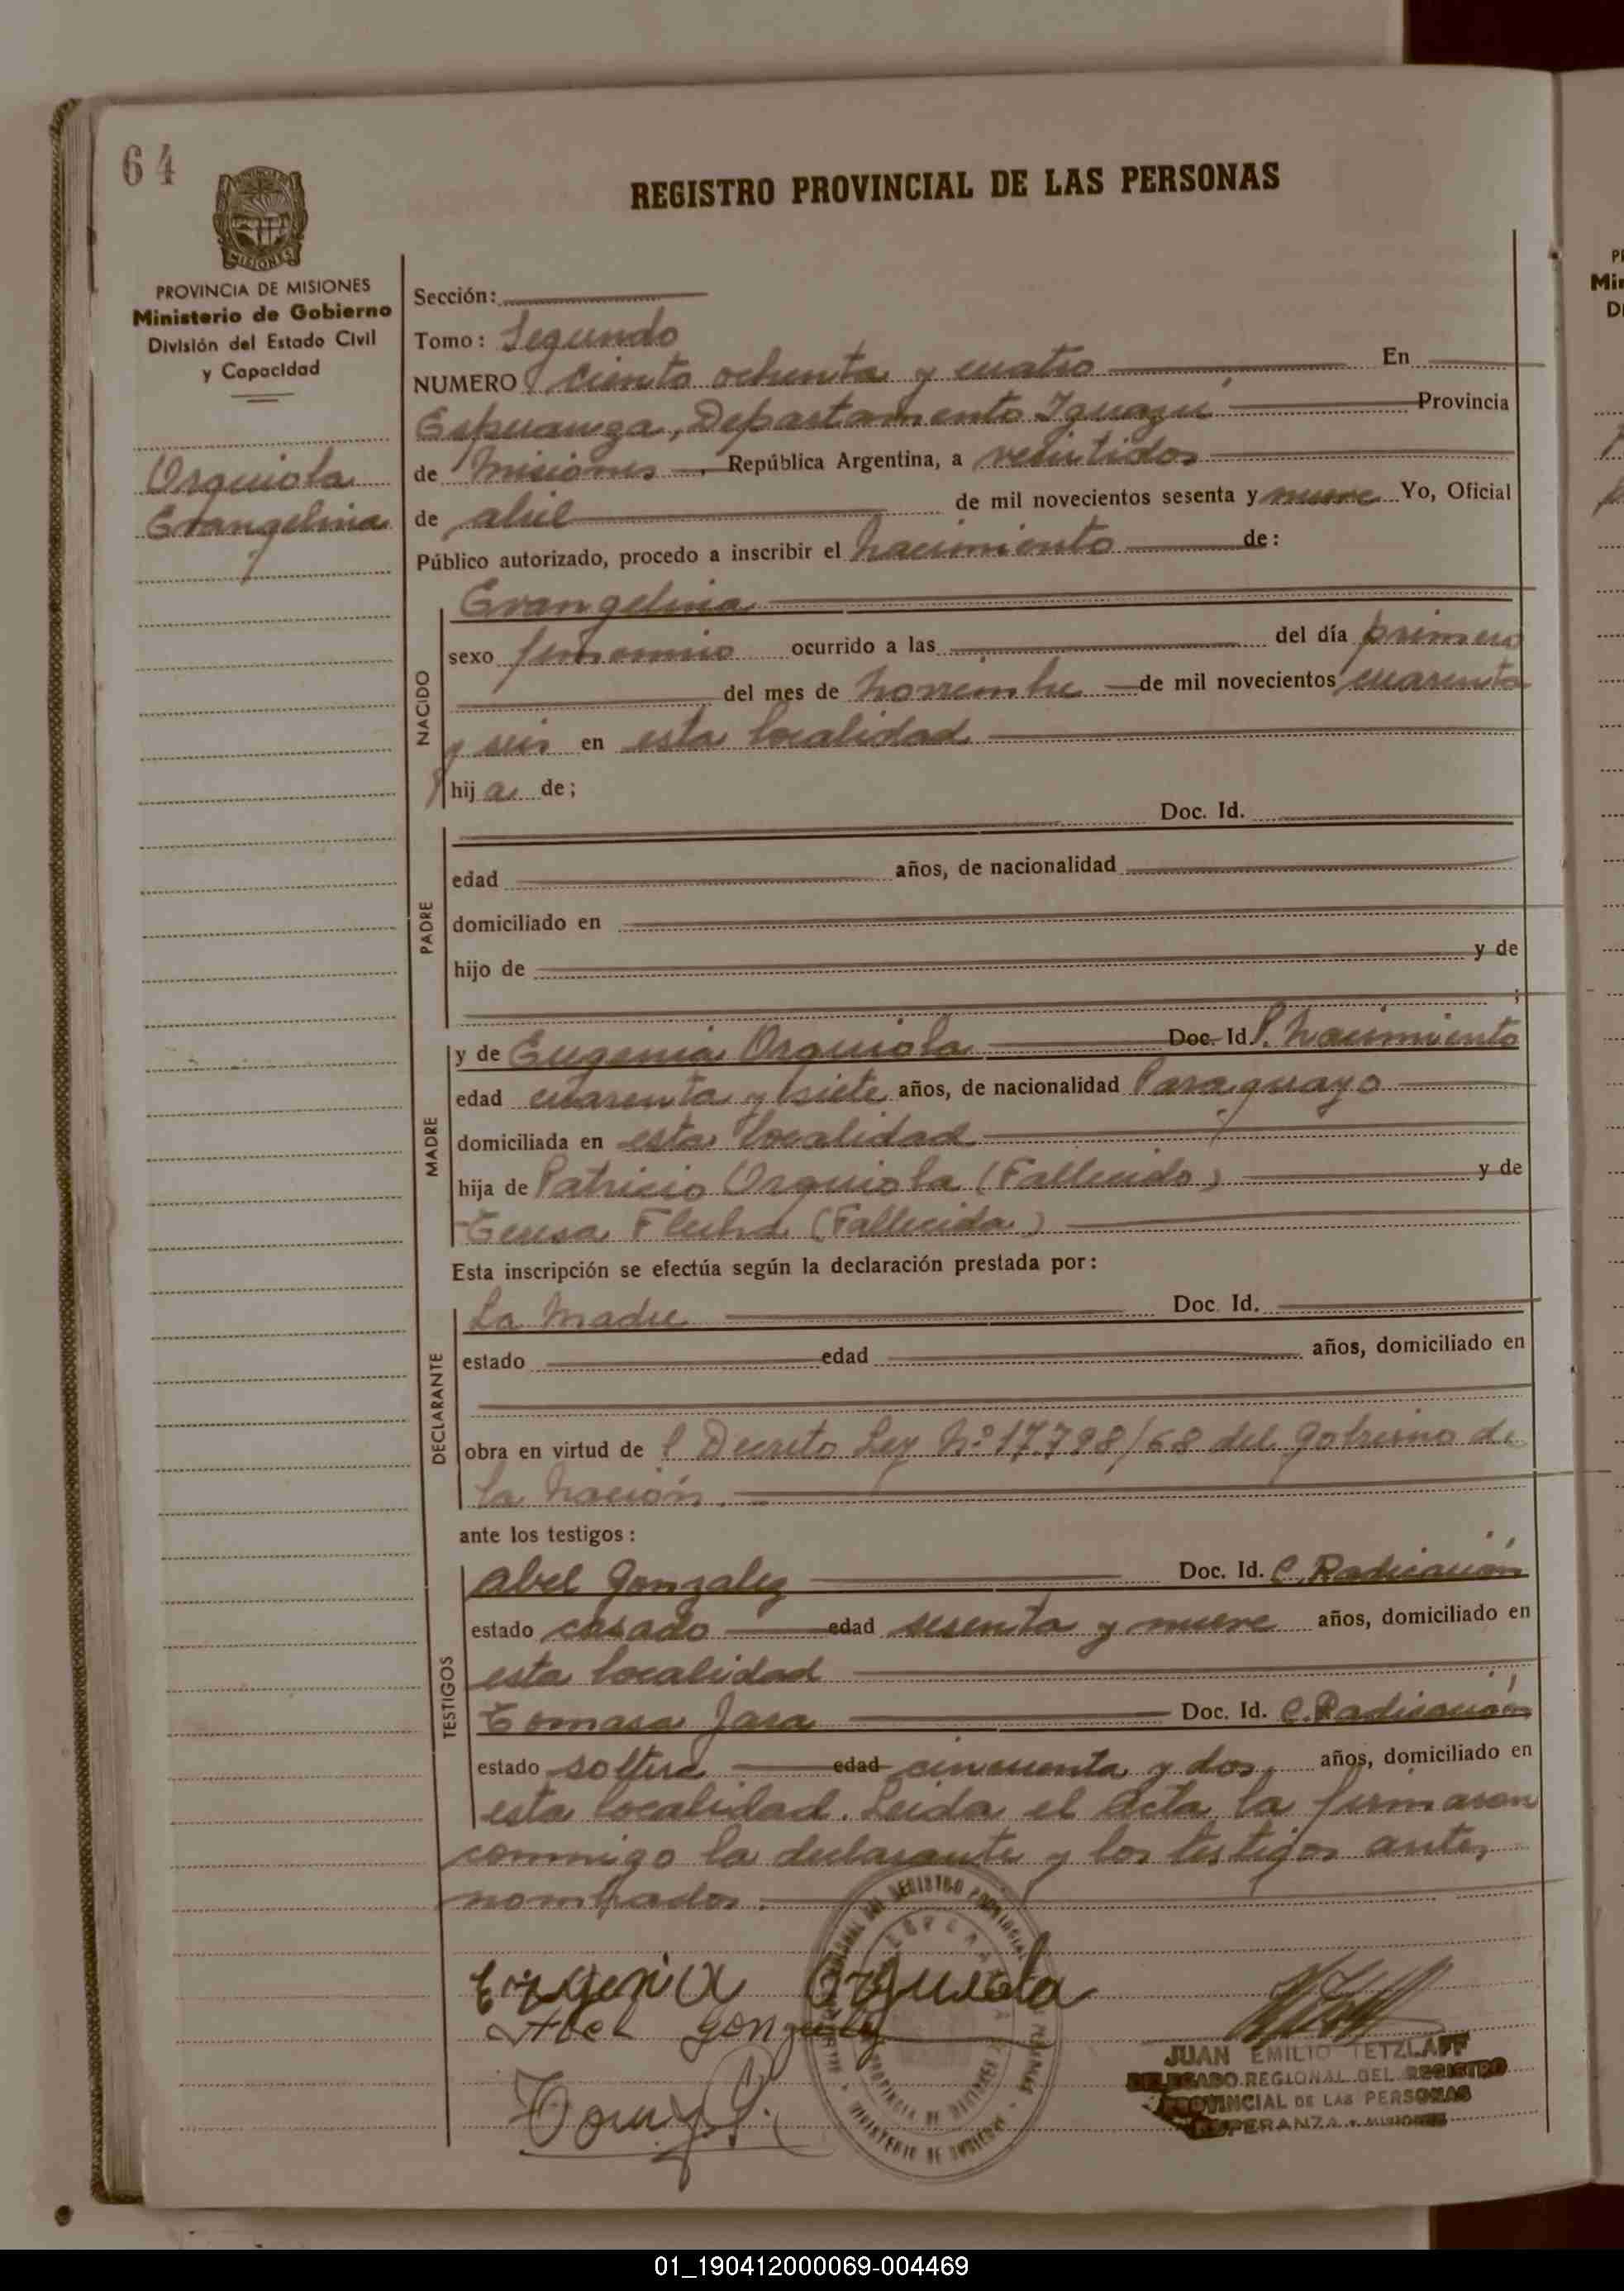 64
REGISTRO PROVINCIAL DE LAS PERSONAS
PROVINCIA DE MISIONES
Ministerio de Gobierno
División del Estado Civil
y Capacidad
Orquiola
Evangelina
Sección:
Tomo: Segundo
NUMERO ciento ochenta y cuatro En
Esperanza, Departamento Iguazú Provincia
de Misiones, República Argentina, a veintidos
de abril de mil novecientos sesenta y nueve Yo, Oficial
Público autorizado, procedo a inscribir el nacimiento de:
NACIDO
Evangelina
sexo femenino ocurrido a las del día primero
del mes de noviembre de mil novecientos cuarenta
y seis en esta localidad
hija de;
PADRE
Doc. Id.
edad años, de nacionalidad
domiciliado en
hijo de y de
;
MADRE
y de Eugenia Orquiola Doc. Id. P. Nacimiento
edad cuarenta y siete años, de nacionalidad Paraguayo
domiciliada en esta localidad
hija de Patricio Orquiola (Fallecido) y de
Teresa Flecha (Fallecida)
Esta inscripción se efectúa según la declaración prestada por:
DECLARANTE
La Madre Doc. Id.
estado edad años, domiciliado en
obra en virtud de l Decreto Ley Nº 17.798/68 del Gobierno de
la Nación.
ante los testigos:
TESTIGOS
Abel Gonzalez Doc. Id. C. Radicación
estado casado edad sesenta y nueve años, domiciliado en
esta localidad
Tomasa Jara Doc. Id. C. Radicación
estado soltera edad cincuenta y dos, años, domiciliado en
esta localidad. Leida el Acta la firmaron
conmigo la declarante y los testigos antes
nombrados.
Eugenia Orquiola
Abel Gonzalez
JUAN EMILIO TETZLAFF
DELEGADO REGIONAL DEL REGISTRO
PROVINCIAL DE LAS PERSONAS
ESPERANZA - MISIONES
01_190412000069-004469